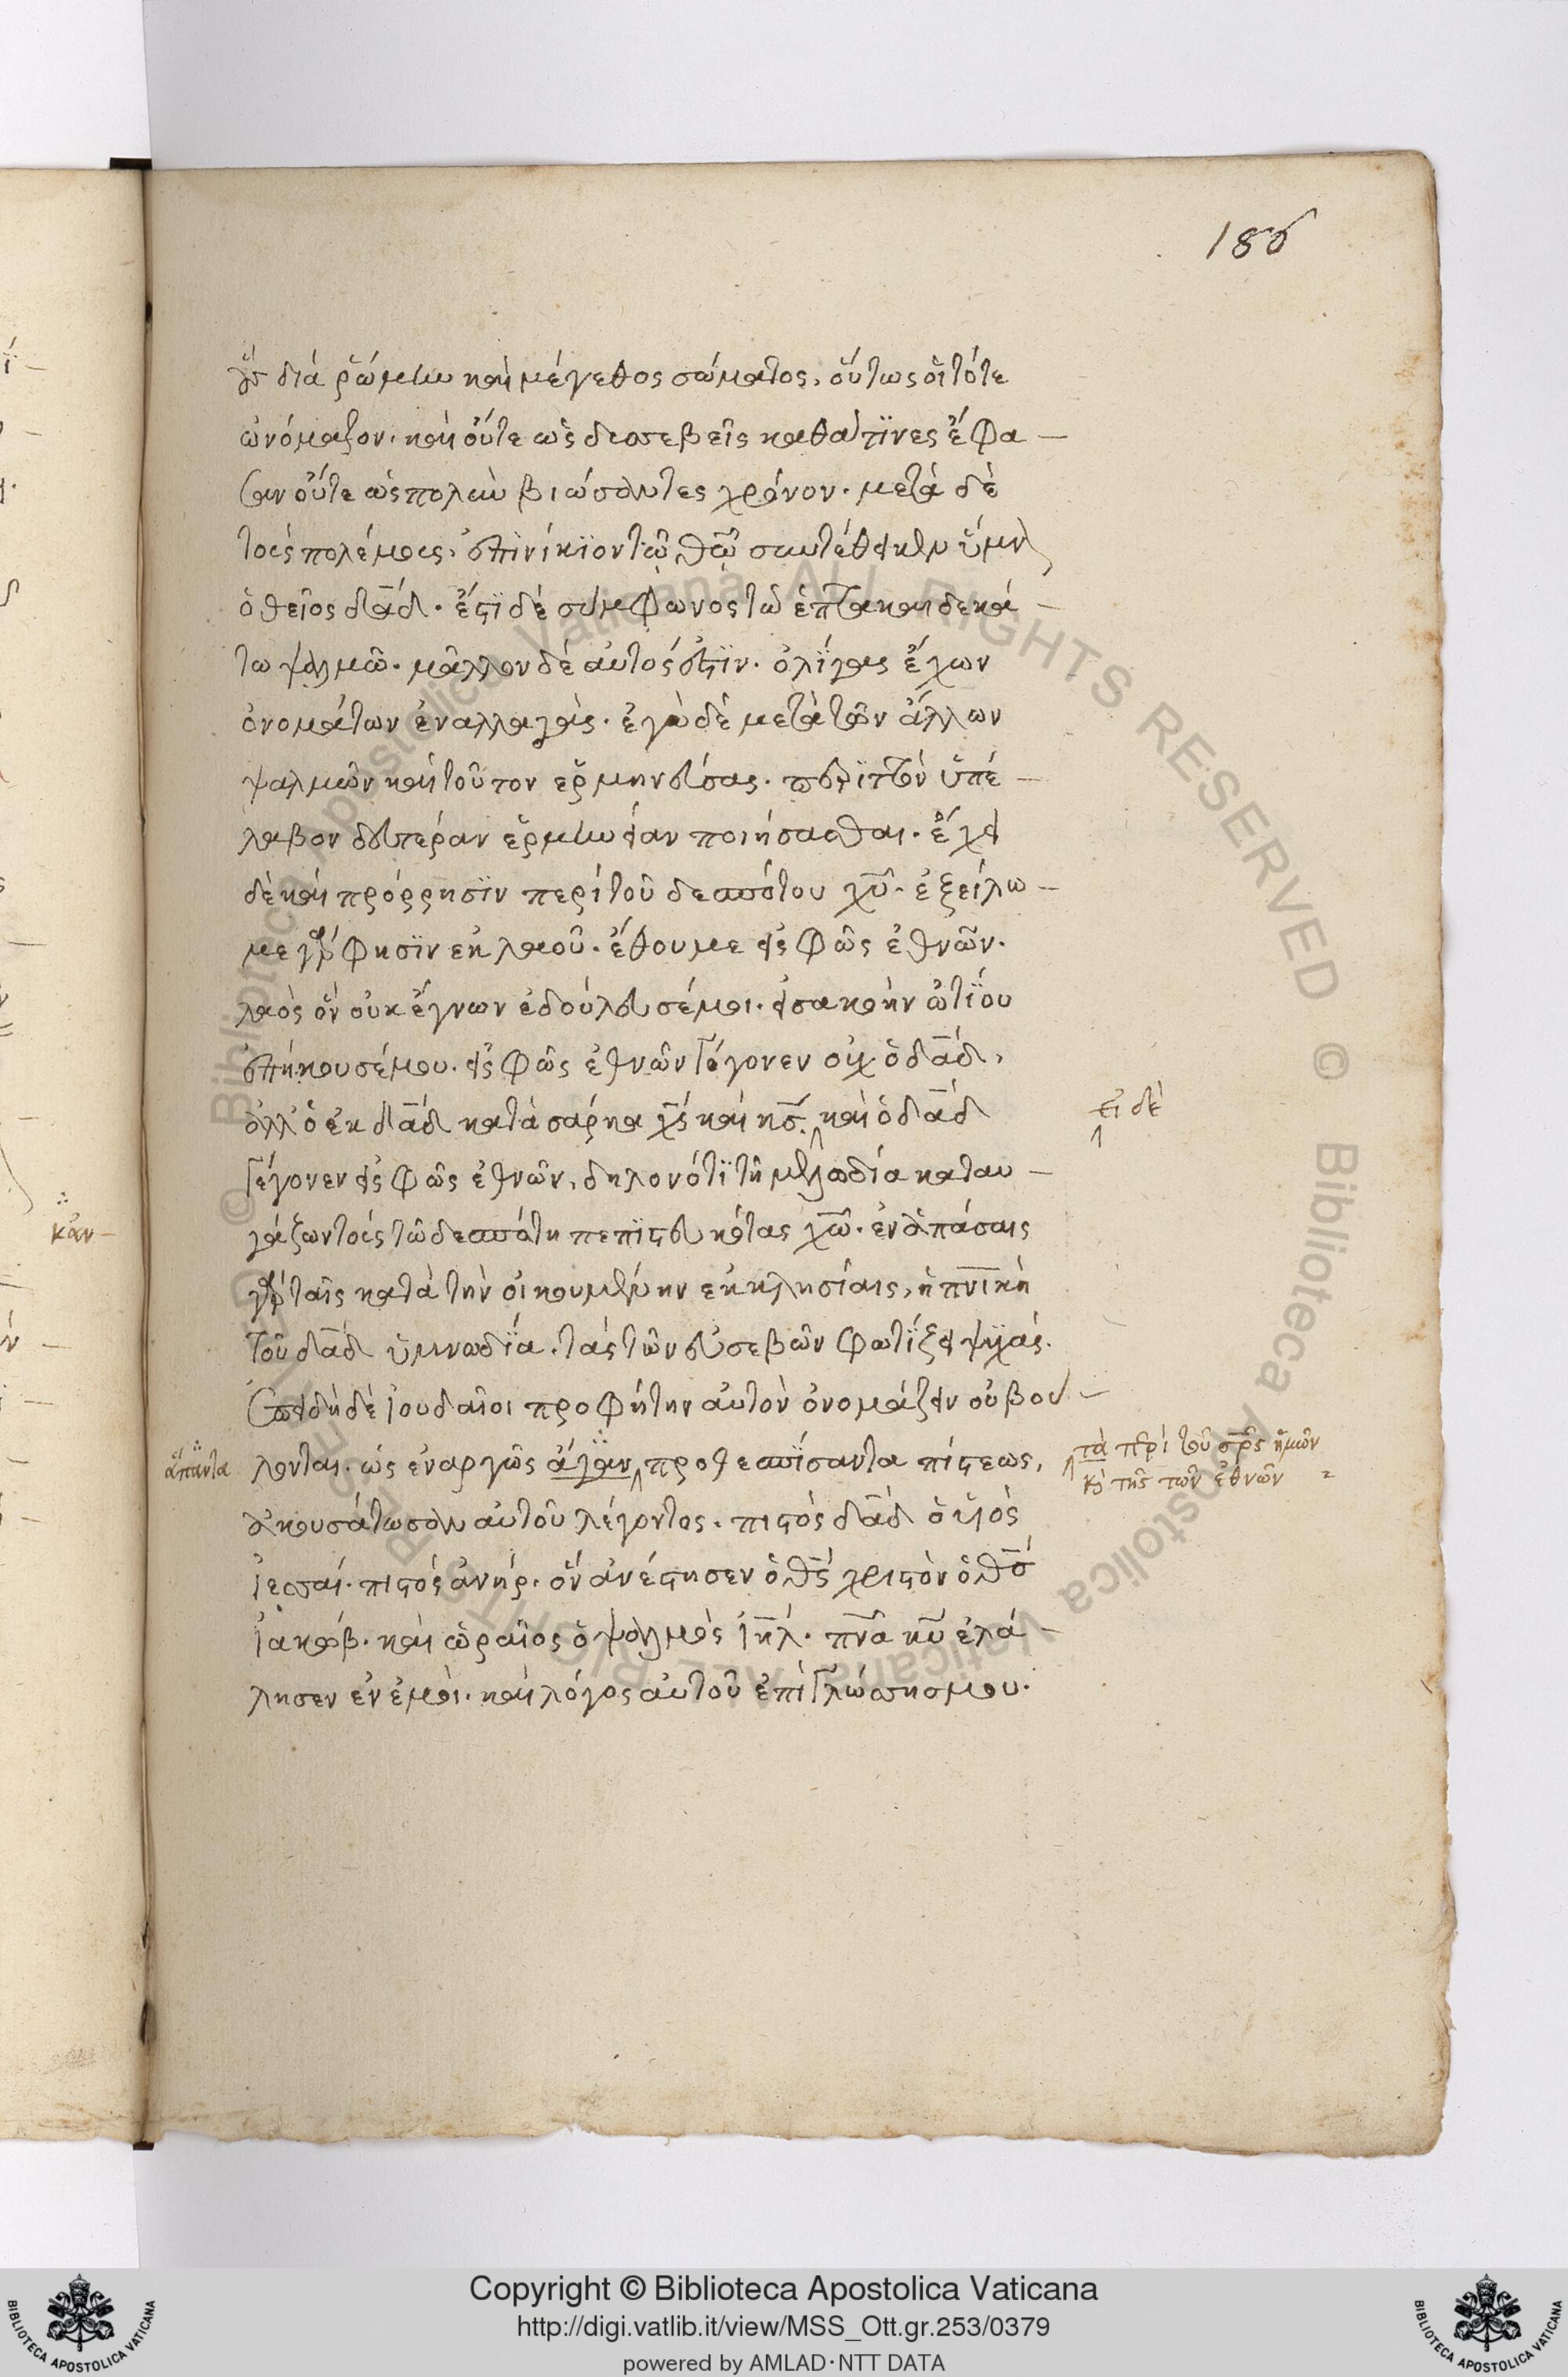 186
γὰρ διὰ ῥώμην καὶ μέγεθος σώματος, οὕτως οἱ τότε
ὠνόμαζον. καὶ οὔτε ὡς θεοσεβεῖς καθά τινες ἔφα-
σαν οὔτε ὡς πολὺν βιώσαντες χρόνον. μετὰ δὲ
τοὺς πολέμους. ἐπινίκιον τῶ θῶ συντέθεικεν ὕμν
ὁ θεῖος δᾱδ. ἔστι δὲ σύμφωνος τῶ ἑπτακαιδεκά-
τω ψαλμῶ. μᾶλλον δὲ αὐτός ἐστιν. ὀλίγας ἔχων
ὀνομάτων ἐναλλαγάς. ἐγὼ δὲ μετὰ τῶν ἄλλων
ψαλμῶν καὶ τοῦτον ἑρμηνεύσας. περιττὸν ὑπέ-
λαβον δευτέραν ἑρμηνείαν ποιήσασθαι. ἔχει
δὲ καὶ πρόρρησιν περὶ τοῦ δεσπότου χῡ. ἐξείλω
με γάρ φησιν ἐκ λαοῦ. ἔθου με εἰς φῶς ἐθνῶν.
λαὸς ὃν οὐκ ἔγνων ἐδούλευσέ μοι. εἰς ἀκοὴν ὠτίου
ἐπήκουσέ μου. εἰς φῶς ἐθνῶν γέγονεν οὐχ ὁ δᾱδ,
ἀλλ' ὁ ἐκ δᾱδ κατὰ σάρκα χ̄ς καὶ κ̄ς. καὶ ὁ δᾱδ
εἰ δὲ
γέγονεν εἰς φῶς ἐθνῶν, δηλονότι τῆ μελωδία καταυ-
γάζων τοὺς τῶ δεσπότη πεπιστευκότας χ̄ω. ἐν ἁπάσαις
γὰρ ταῖς κατὰ τὴν οἰκουμένην ἐκκλησίαις, ἡ πν̄ικὴ
τοῦ δᾱδ ὑμνωδία. τὰς τῶν εὐσεβῶν φωτίζει ψυχάς.
ἐπειδὴ δὲ ἰουδαῖοι προφήτην αὐτὸν ὀνομάζειν οὐ βού-
ἅπαντα
λονται. ὡς ἐναργῶς ἄγαν προθεσπίσαντα πίστεως,
τὰ περὶ τοῦ σ̄ρ̄ς ἡμῶν
κ̀ τῆς τῶν ἐθνῶν
ἀκουσάτωσαν αὐτοῦ λέγοντος. πιστὸς δᾱδ ὁ υἱὸς
ἰεσσαί. πιστὸς ἀνήρ. ὃν ἀνέστησεν ὁ θ̄ς χριστὸν ὁ θ̄ς
ἰακώβ. καὶ ὡραῖος ὁ ψαλμὸς ἰη̄λ. πν̄α κ̄υ ἐλά-
λησεν ἐν ἐμοί. καὶ λόγος αὐτοῦ ἐπὶ γλώσσης μου.
κἂν
Copyright © Biblioteca Apostolica Vaticana
http://digi.vatlib.it/view/MSS_Ott.gr.253/0379
powered by AMLAD·NTT DATA